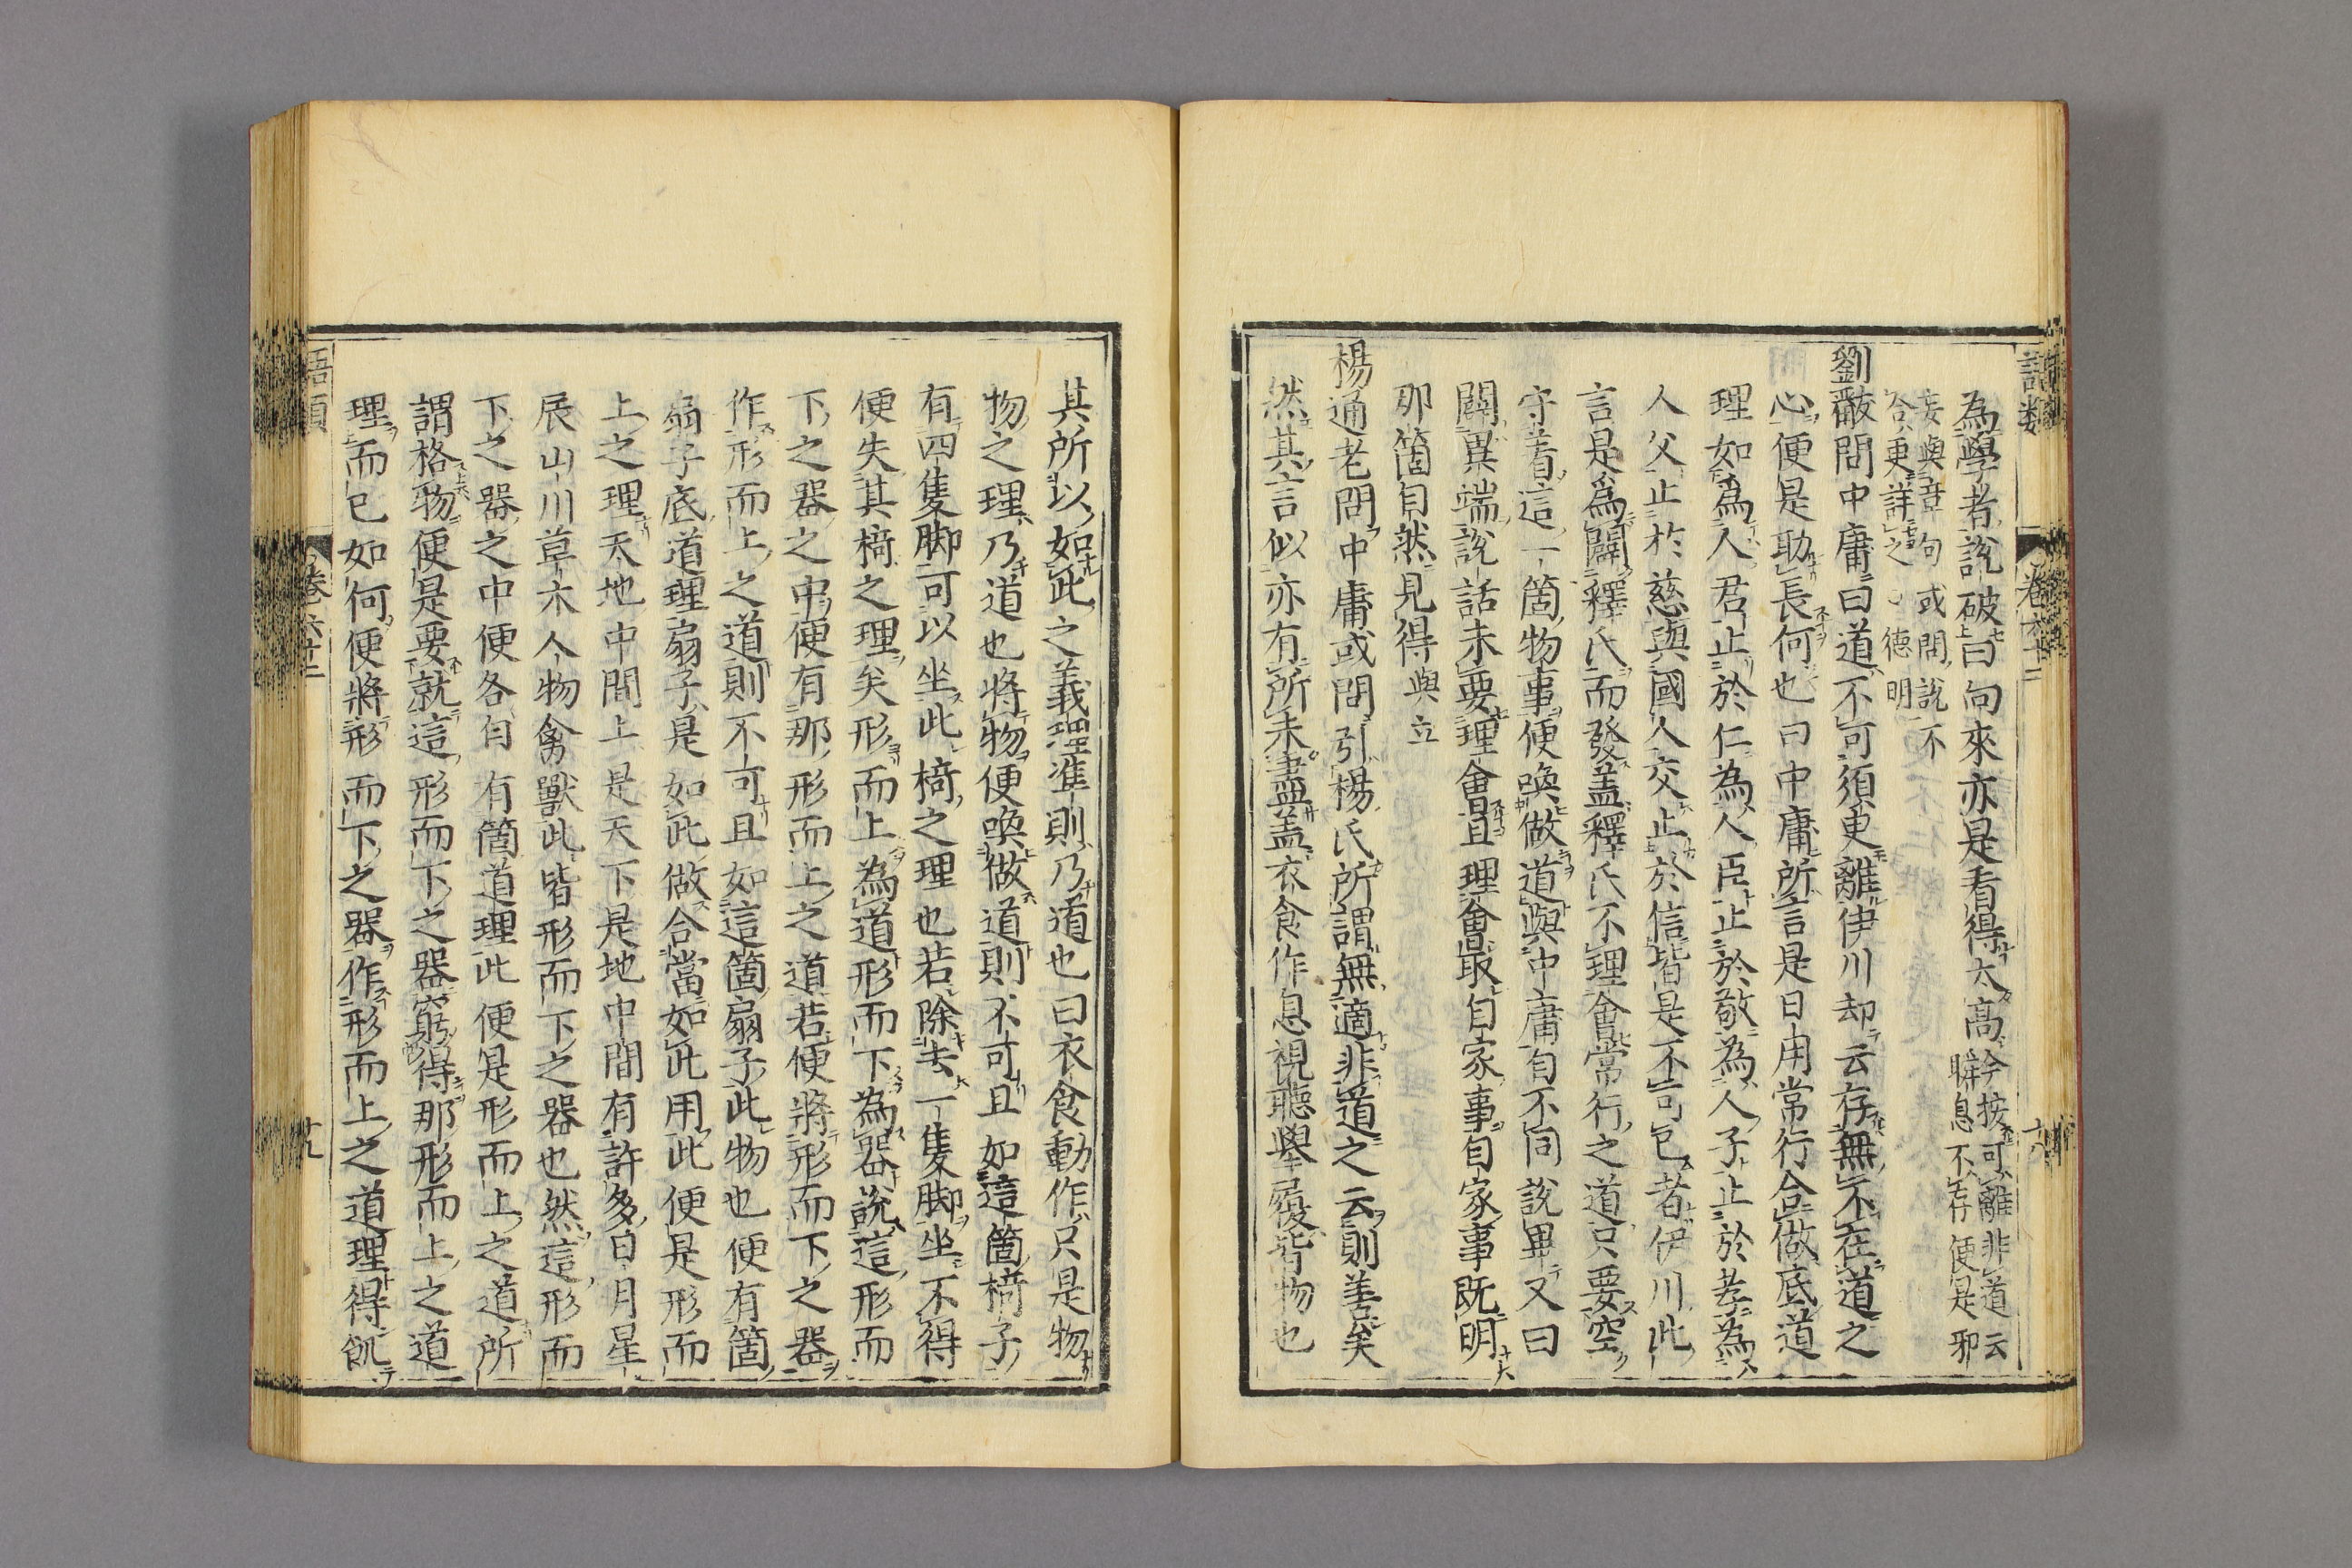 為學者說破曰向來亦是看得太高今按可離非道云
瞬息不存便是邪
妄與章句或問說不
合更詳之 德明
劉黻問中庸曰道不可須臾離伊川却云存無不在道之
心便是助長何也曰中庸所言是日用常行合做底道
理如為人君止於仁為人臣止於敬為人子止於孝為
人父止於慈與國人交止於信皆是不可已者伊川此
言是為闢釋氏而發蓋釋氏不理會常行之道只要空
守着這一箇物事便喚做道與中庸自不同說畢又曰
闢異端說話未要理會且理會取自家事自家事既明
那箇自然見得 與立
楊通老問中庸或問引楊氏所謂無適非道之云則善矣
然其言似亦有所未盡蓋衣食作息視聽舉履皆物也
其所以如此之義理準則乃道也曰衣食動作只是物
物之理乃道也將物便喚做道則不可且如這箇椅子
有四隻脚可以坐此椅之理也若除去一隻脚坐不得
便失其椅之理矣形而上為道形而下為器說這形而
下之器之中便有那形而上之道若便將形而下之器
作形而上之道則不可且如這箇扇子此物也便有箇
扇子底道理扇子是如此做合當如此用此便是形而
上之理天地中間上是天下是地中間有許多日月星
辰山川草木人物禽獸此皆形而下之器也然這形而
下之器之中便各自有箇道理此便是形而上之道所
謂格物便是要就這形而下之器窮得那形而上之道
理而已如何便將形而下之器作形而上之道理得飢
語類 卷六十二 十九